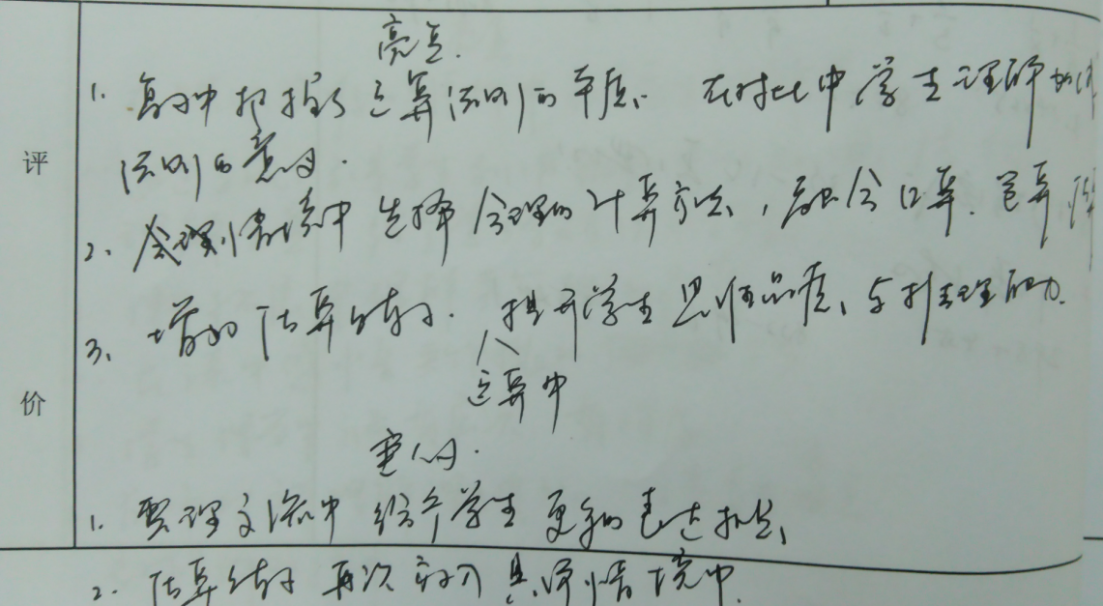 评价
亮点.
1. 复习中把握了运算法则的本质、在对比中学生理解
法则的意义.
2. 合理情境中选择合理的计算方法,融合口算、笔算
3. 增加估算的 . 提升学生思维品质、与推理能力.
运算中
建议.
1. 整理交流中给予学生更多的表达机会、
2. 估算 再次 具体情境中.